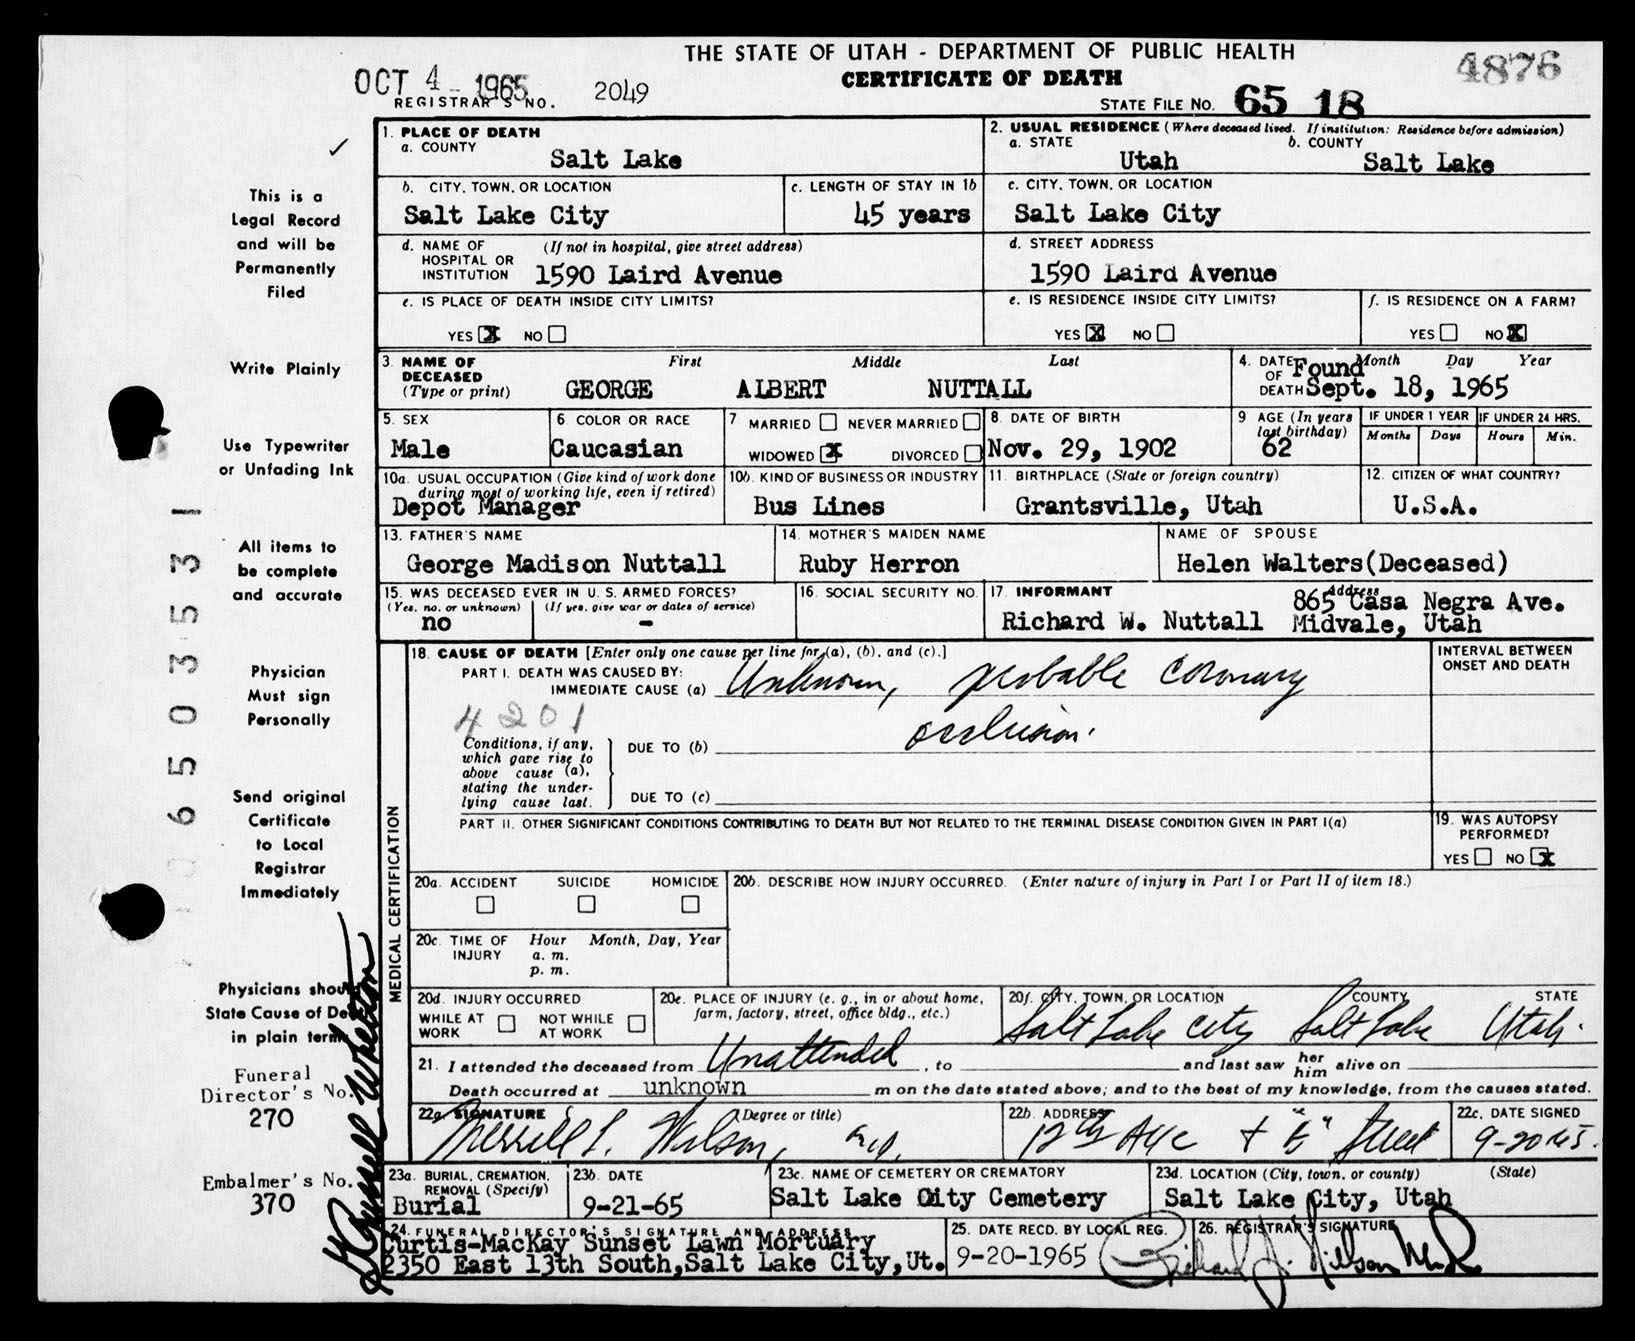 THE STATE OF UTAH - DEPARTMENT OF PUBLIC HEALTH
4876
OCT 4 - 1965
CERTIFICATE OF DEATH
REGISTRAR'S NO. 2049
STATE FILE NO. 65 18
1. PLACE OF DEATH
a. COUNTY
Salt Lake
2. USUAL RESIDENCE (Where deceased lived. If institution: Residence before admission)
a. STATE
Utah
b. COUNTY
Salt Lake
b. CITY, TOWN, OR LOCATION
Salt Lake City
c. LENGTH OF STAY IN 1b
45 years
c. CITY, TOWN, OR LOCATION
Salt Lake City
d. NAME OF HOSPITAL OR INSTITUTION
(If not in hospital, give street address)
1590 Laird Avenue
d. STREET ADDRESS
1590 Laird Avenue
e. IS PLACE OF DEATH INSIDE CITY LIMITS?
YES X NO
e. IS RESIDENCE INSIDE CITY LIMITS?
YES X NO
f. IS RESIDENCE ON A FARM?
YES NO X
3. NAME OF DECEASED (Type or print)
First Middle Last
GEORGE ALBERT NUTTALL
4. DATE OF DEATH
Month Day Year
Found
Sept. 18, 1965
5. SEX
Male
6 COLOR OR RACE
Caucasian
7 MARRIED NEVER MARRIED
WIDOWED X DIVORCED
8. DATE OF BIRTH
Nov. 29, 1902
9 AGE (In years last birthday)
62
IF UNDER 1 YEAR
Months Days
IF UNDER 24 HRS.
Hours Min.
10a. USUAL OCCUPATION (Give kind of work done during most of working life, even if retired)
Depot Manager
10b. KIND OF BUSINESS OR INDUSTRY
Bus Lines
11. BIRTHPLACE (State or foreign country)
Grantsville, Utah
12. CITIZEN OF WHAT COUNTRY?
U.S.A.
13. FATHER'S NAME
George Madison Nuttall
14. MOTHER'S MAIDEN NAME
Ruby Herron
NAME OF SPOUSE
Helen Walters(Deceased)
15. WAS DECEASED EVER IN U. S. ARMED FORCES?
(Yes, no, or unknown) (If yes, give war or dates of service)
no -
16. SOCIAL SECURITY NO.
17. INFORMANT
Address
Richard W. Nuttall
865 Casa Negra Ave.
Midvale, Utah
MEDICAL CERTIFICATION
18. CAUSE OF DEATH [Enter only one cause per line for (a), (b), and (c).]
INTERVAL BETWEEN ONSET AND DEATH
PART I. DEATH WAS CAUSED BY:
IMMEDIATE CAUSE (a) Unknown, probable coronary
occlusion.
4201
Conditions, if any, which gave rise to above cause (a), stating the underlying cause last.
DUE TO (b)
DUE TO (c)
PART II. OTHER SIGNIFICANT CONDITIONS CONTRIBUTING TO DEATH BUT NOT RELATED TO THE TERMINAL DISEASE CONDITION GIVEN IN PART I(a)
19. WAS AUTOPSY PERFORMED?
YES NO X
20a. ACCIDENT SUICIDE HOMICIDE
20b. DESCRIBE HOW INJURY OCCURRED. (Enter nature of injury in Part I or Part II of item 18.)
20c. TIME OF INJURY
Hour Month, Day, Year
a. m.
p. m.
20d. INJURY OCCURRED
WHILE AT WORK NOT WHILE AT WORK
20e. PLACE OF INJURY (e. g., in or about home, farm, factory, street, office bldg., etc.)
20f. CITY, TOWN, OR LOCATION COUNTY STATE
Salt Lake City Salt Lake Utah.
21. I attended the deceased from Unattended, to and last saw her him alive on
Death occurred at unknown m on the date stated above; and to the best of my knowledge, from the causes stated.
22a. SIGNATURE (Degree or title)
Merrill L. Wilson, M.D.
22b. ADDRESS
12th Ave + "E" Street
22c. DATE SIGNED
9-20-65.
23a. BURIAL, CREMATION, REMOVAL (Specify)
Burial
23b. DATE
9-21-65
23c. NAME OF CEMETERY OR CREMATORY
Salt Lake City Cemetery
23d. LOCATION (City, town, or county) (State)
Salt Lake City, Utah
24. FUNERAL DIRECTOR'S SIGNATURE AND ADDRESS
Curtis-MacKay Sunset Lawn Mortuary
2350 East 13th South,Salt Lake City,Ut.
25. DATE RECD. BY LOCAL REG.
9-20-1965
26. REGISTRAR'S SIGNATURE
Richard J. Nilson M.D.
This is a
Legal Record
and will be
Permanently
Filed
Write Plainly
Use Typewriter
or Unfading Ink
All items to
be complete
and accurate
Physician
Must sign
Personally
Send original
Certificate
to Local
Registrar
Immediately
Physicians should
State Cause of Death
in plain terms
Funeral
Director's No.
270
Embalmer's No.
370